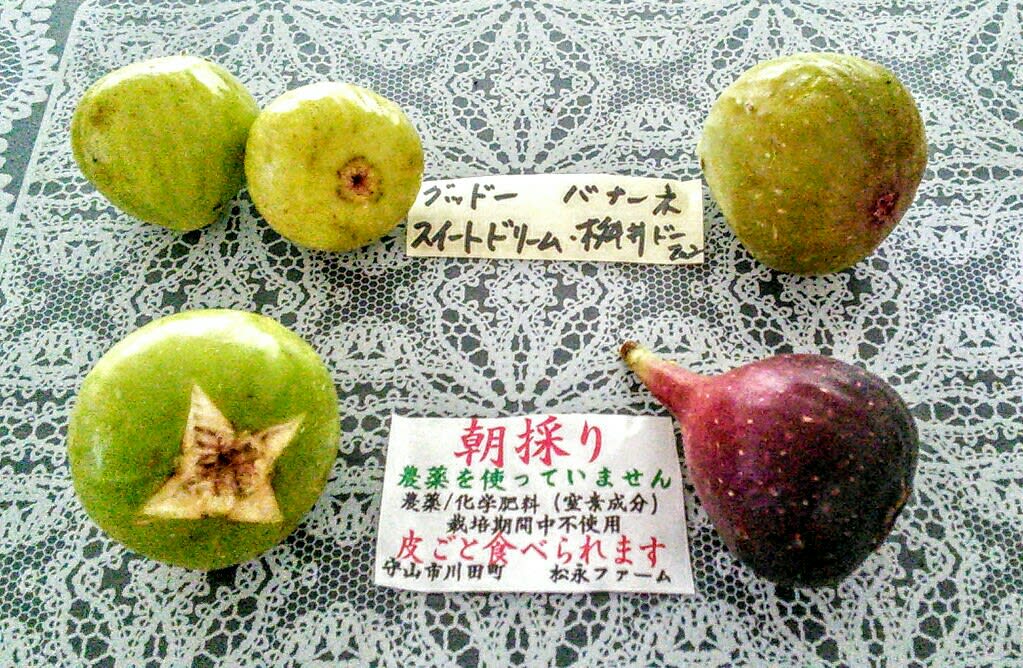 グッドー バナーネ
スイートドリーム・桝井ドーフィン
朝採り
農薬を使っていません
農薬/化学肥料（窒素成分）
栽培期間中不使用
皮ごと食べられます
守山市川田町 松永ファーム